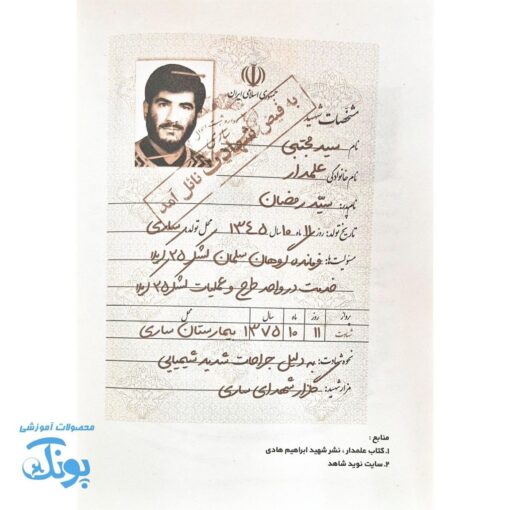 جمهوری اسلامی ایران
مشخصات شهید
به فیض شهادت نائل آمد
نام سید مجتبی
نام خانوادگی: علمدار
نام پدر: سید رمضان
تاریخ تولد: روز ۱۱ ماه ۱۰ سال ۱۳۴۵ محل تولد: ساری
مسئولیت‌ها: فرمانده گروهان سلمان لشکر ۲۵ کربلا
خدمت در واحد طرح و عملیات لشکر ۲۵ کربلا
پرواز روز ماه سال محل
شهادت ۱۱ ۱۰ ۱۳۷۵ بیمارستان ساری
نحوه شهادت: به دلیل جراحات شدید شیمیایی
مزار شهید: گلزار شهدای ساری
منابع :
۱. کتاب علمدار ، نشر شهید ابراهیم هادی
۲. سایت نوید شاهد
محصولات آموزشی
پونک